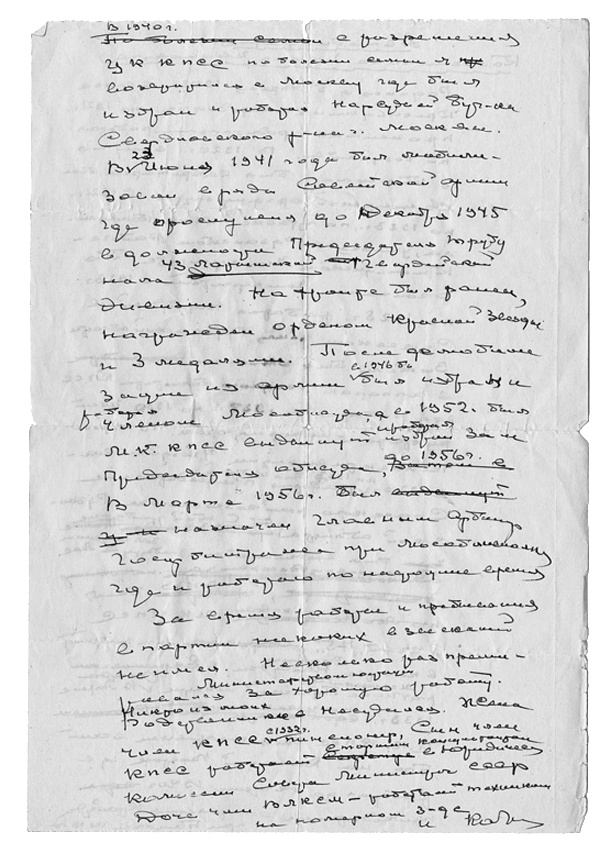 В 1940 г.
По болезни семьи с разрешения
ЦК КПСС по болезни семьи я
возвратился в Москву где был
избран и работал Народным
Свердловского р-на г. Москвы.
23
В Июня 1941 года был мобили-
зован в ряды Советской армии
где прослужил до Декабря 1945
в должности Председателя трибу
нала 43 Латышской Гвардейской
дивизии. На фронте был ранен,
награжден орденом Красной Звезды
и 3 медалями. После демобили
с 1946
зации из армии был избран и
работал
членом Мособлсуда, а с 1952 г. был
и работал
МК КПСС выдвинут избран Зам
до 1956 г.
Председателя облсуда, Затем в
В Марте 1956 г. был выдвинут
и назначен Главным Арбитр
Госарбитража при Мособлисполком
где и работаю по настоящее время
За время работы и пребывания
в партии никаких взысканий
не имел. Несколько раз преми-
Министерством юстиции
ровался за хорошую работу.
Никто из моих
Родственников не судился. Жена
с 1932 г.
член КПСС пенсионер, Сын член
старшим консультантом
КПСС работает в Юридической
комиссии Совета Министров СССР
Дочь член ВЛКСМ – работает техником
на номерном з-де